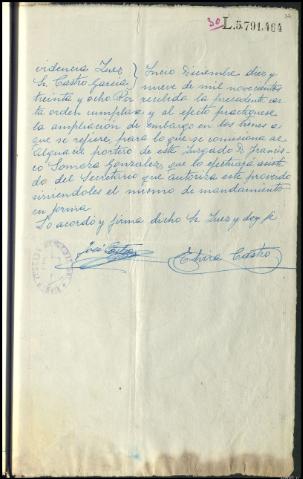 30 L.5.791.464
videncia Juez } Incio Diciembre diez y
Sr. Castro García } nueve de mil novecientos
treinta y ocho Por recibida la precedente car
ta orden cumplase y al efecto practiquese
la ampliación de embargo en los bienes a
que se refiere, para lo que se comisiona al
Alguacil portero de este Juzgado D. Francis
co Somoza Gonzalez que lo efectuará asisti
do del Secretario que autoriza este proveido
sirviendoles el mismo de mandamiento
en forma
Lo acordó y firma dicho Sr. Juez y doy fe
José Castro Elvira Castro